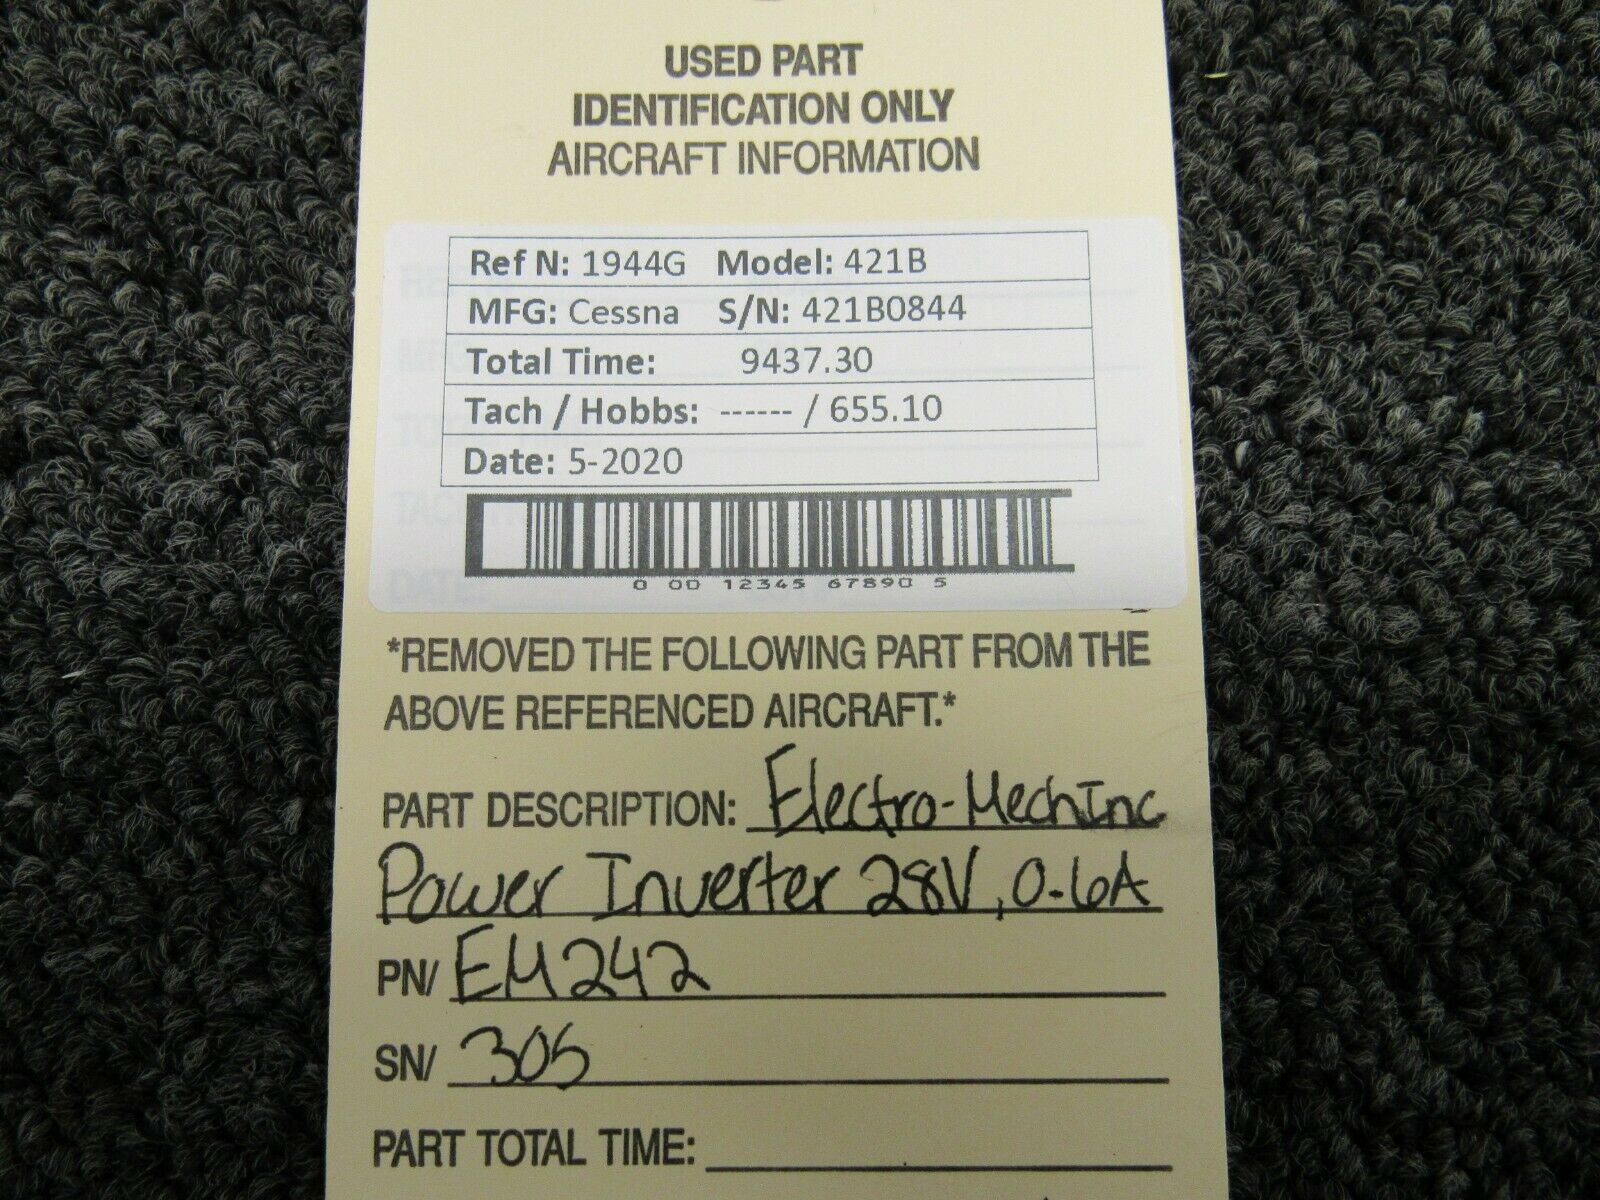 USED PART
IDENTIFICATION ONLY
AIRCRAFT INFORMATION
Ref N: 1944G Model: 421B
MFG: Cessna S/N: 421B0844
Total Time: 9437.30
Tach / Hobbs: ------ / 655.10
Date: 5-2020
0 00 12345 67890 5
*REMOVED THE FOLLOWING PART FROM THE
ABOVE REFERENCED AIRCRAFT.*
PART DESCRIPTION: Electro-Mech Inc
Power Inverter 28V, 0-6A
PN/ EM242
SN/ 305
PART TOTAL TIME: